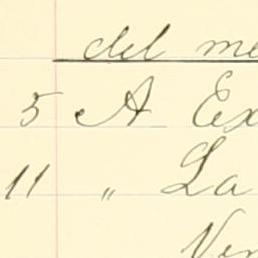 del me
5 A Ex
11 " La
Ven